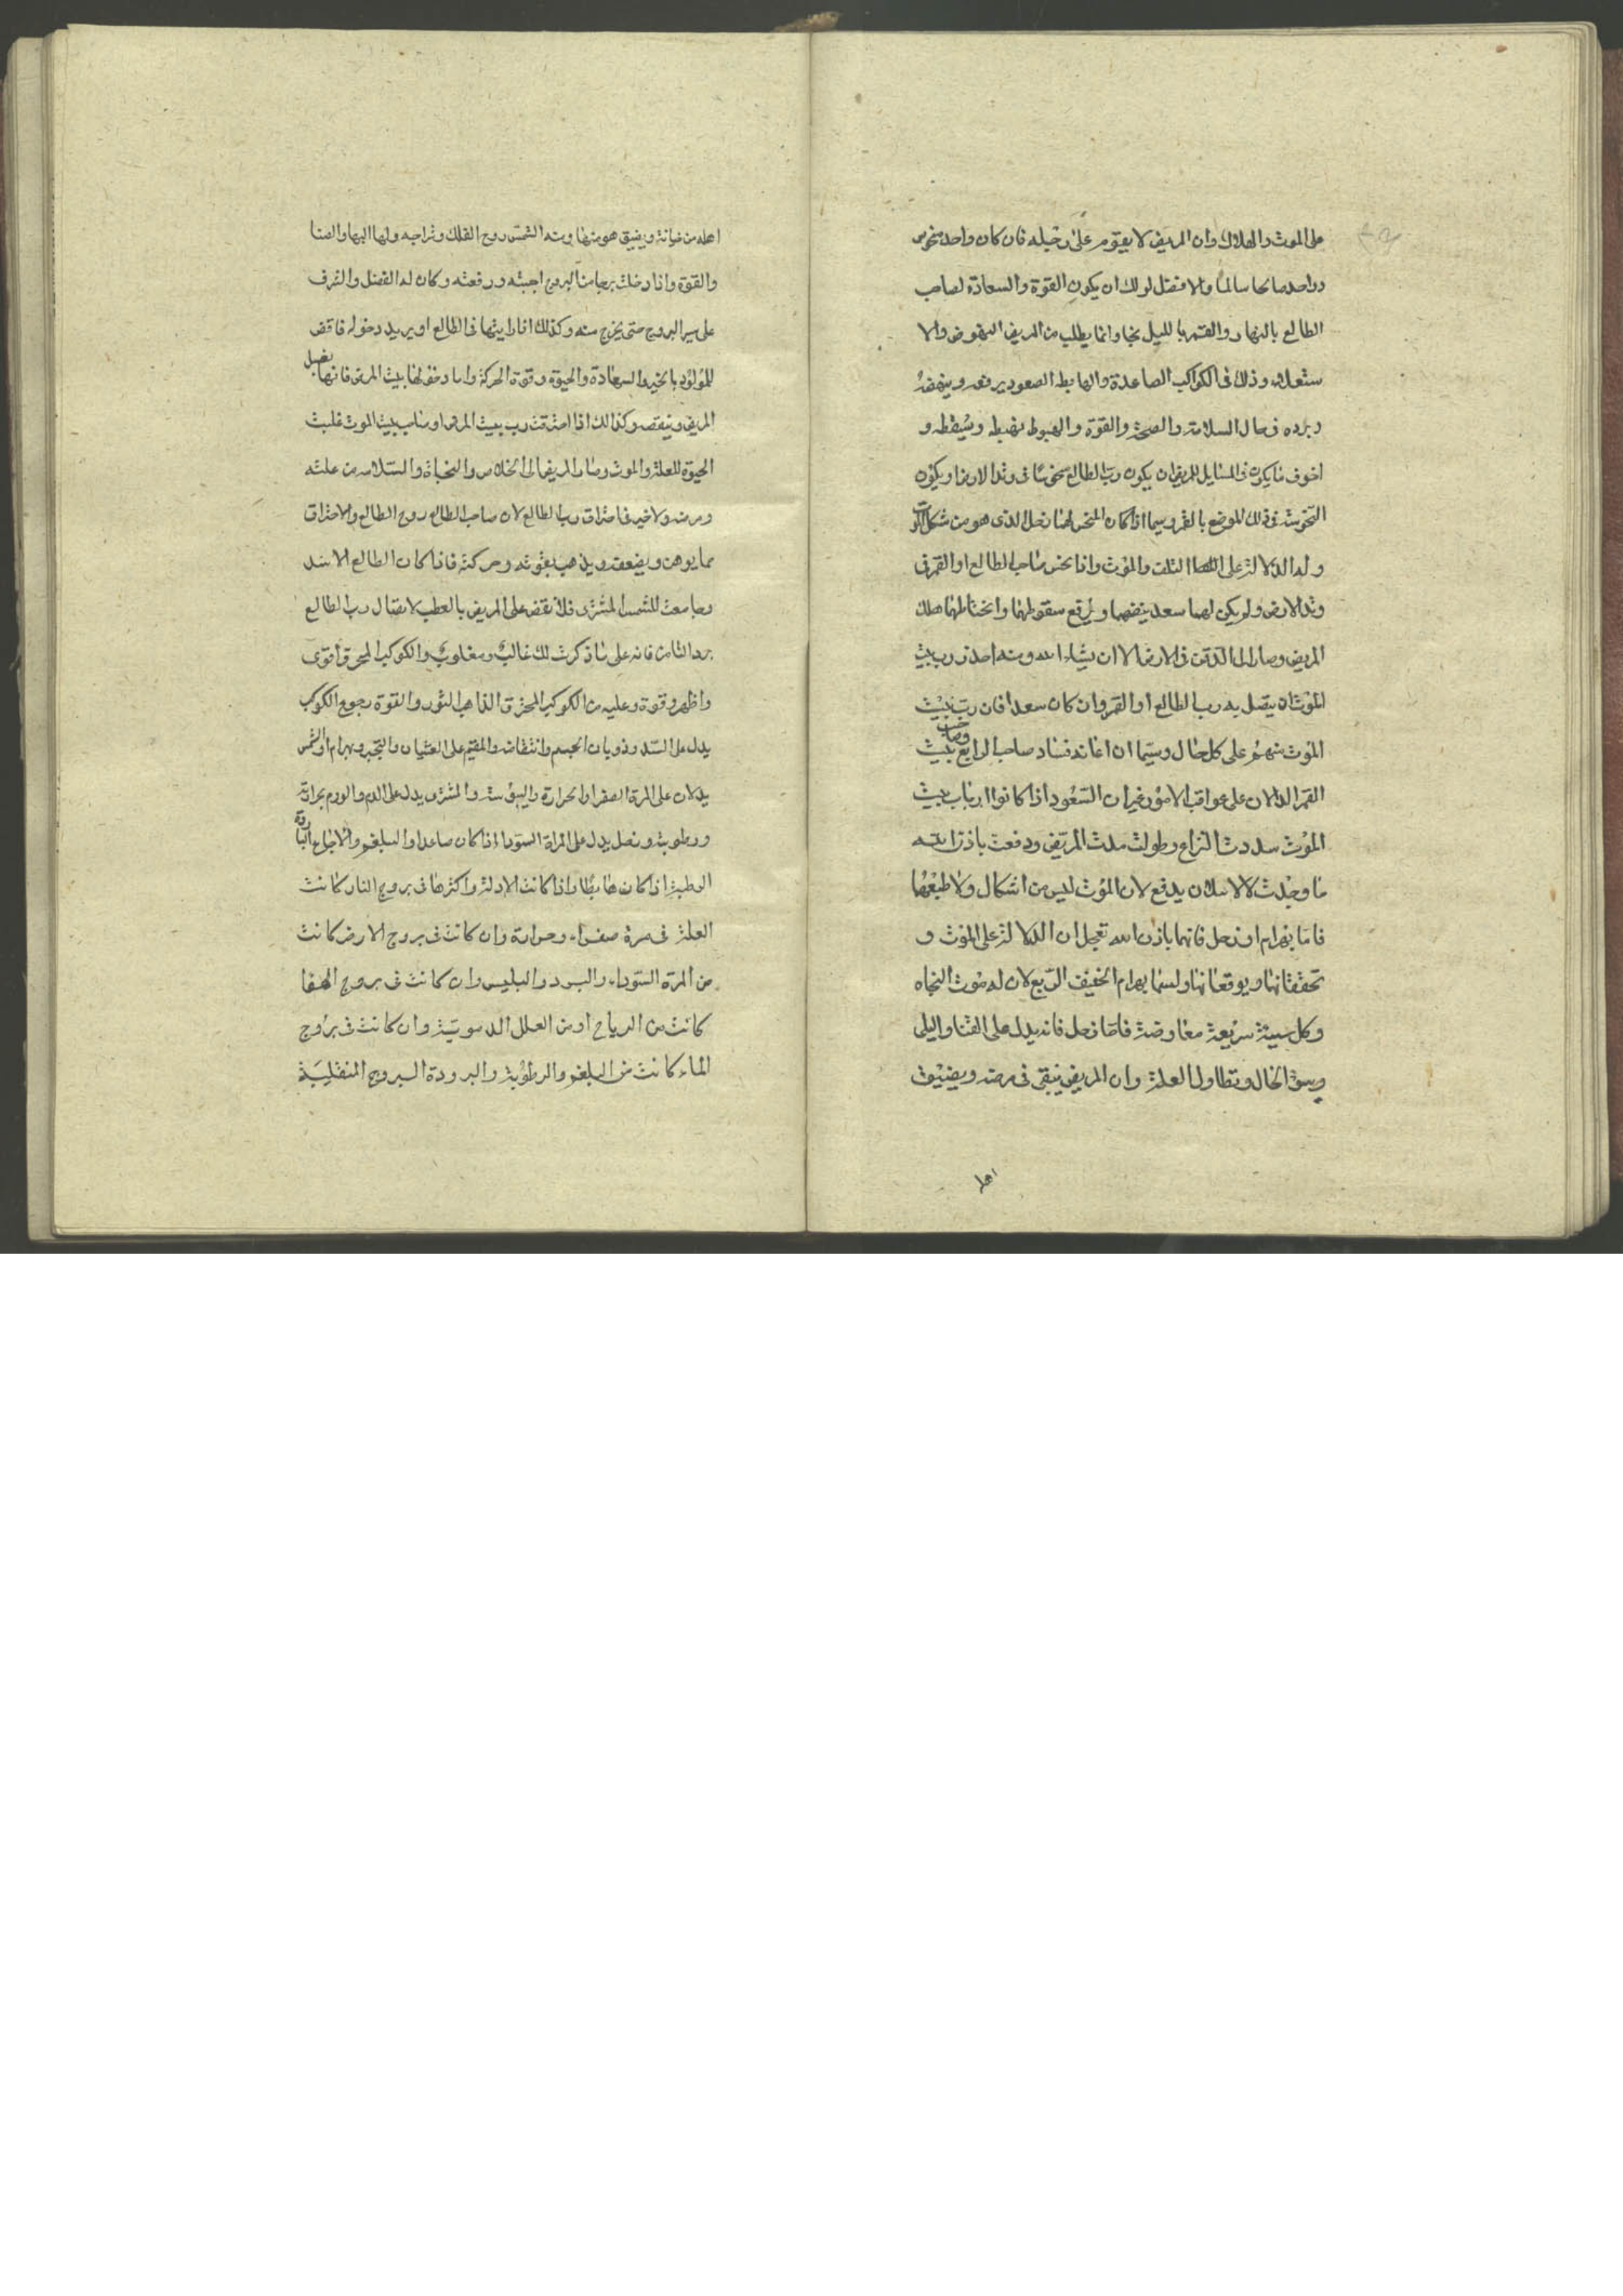 على الموت والهلاك وان المريض لا يقوم على رجيله فان كان واحد منحوس
وواحد صالحا سالما والا فقتل لولك ان يكون القوة والسعادة لصاحب
الطالع بالنهار والقمر بالليل نجا وانما يطلب من المريض النهوض والا
ستعلاء وذلك فى الكواكب الصاعدة والهابط الصعود يرفعه وينهضه
ويرده فى حال السلامة والصحة والقوة والهبوط يهبطه ويسقطه و
اخوف ما يكون فى المسايل للمريض ان يكون رب الطالع منحوسا فى وتد الارض او يكون
النحوسة فى ذلك الموضع بالقمر وسيما اذا كان المنحس لهما زحل الذى هو من شكل الموت
وله الدلالة على التلف والموت واذا نحس صاحب الطالع او القمر فى
وتد الارض ولم يكن لهما سعد ينهضها ويرفع سقوطهما وانحطاطهما هلك
المريض وصار الى الدفن فى الارض الا ان يشاء الله ومنه احذر رب بيت
الموت ان يتصل به رب الطالع او القمر وان كان سعدا فان رب بيت
الموت متهم على كل حال وسيما ان اعانه فساد صاحب الرابع وصاحب بيت
القمر الدالان على عواقب الامور غير ان السعود اذا كانوا ارباب بيت
الموت سددت النزاع وطولت مدت المريض ودفعت باذن الله
ما وجدت لالاسلان يدفع لان الموت ليس من اشكال ولا طبعها
فاما بهرام او زحل فانهما باذن الله تعجل ان الدلالة على الموت و
تحققانها ويوقعانها ولسما بهرام الخفيف الربع لان له موت الفجاه
وكل سيئة سريعة معارضة فاما زحل فانه يدل على الفنا والبلى
وسوء الحال وتطاول العلة وان المريض يبقى فى مرضه ويضيق
اهله
اهله من ضيانة ويضيق هو منها ومنه الشمس روح الفلك وسراجه ولها البها والضيا
والقوة واذا دخلت برجا من البروج احيته ورفعته وكان له الفضل والشرف
على سير البروج حتى يخرج منه وكذلك اذا رايتها فى الطالع او يريد دخوله فاقض
للمولود بالخير والسعادة والحيوة وقوة الحركة واما دخولها بيت المرض فانها يفصل
المريض وينقصه وكذلك اذا احترقت رب بيت المرض او صاحب بيت الموت غلبت
الحيوة للعلة والموت وصار المريض الى الخلاص والنجاة والسلامه من علته
ومرضه ولا خير فى احتراق رب الطالع لان صاحب الطالع روح الطالع والاحتراق
مما يوهن ويضعفه ويذهب بقوته وحركته فاذا كان الطالع الاسد
وجامعت للشمس المشترى فلا تقض على المريض بالعطب لاتصال رب الطالع
برب الثامن فانه على ما ذكرت لك غالب ومغلوب والكوكب المحرق اقوى
واظهر وقوة وعليه من الكوكب المحترق الذاهب النور والقوة رجوع الكوكب
يدل على السد وذوبان الجسم وانتقاضه والمقيم على الغشيان والتحير وبهرام او الشمس
يدلان على المرة الصفرا والحرارة واليبوسة والمشترى يدل على الدم والورم بحرارته
ورطوبته وزحل يدل على المراة السودا اذا كان صاعدا والبلغم والاوجاع الباردة
الرطبة اذا كان هابطا واذا كانت الادلة واكثرها فى بروج النار كانت
العلة فى مرة صفراء وحرارة وان كانت فى بروج الارض كانت
من المرة السوداء والبرد والبليس وان كانت فى بروج الهوا
كانت من الرياح او من العلل الدموية وان كانت فى بروج
الماء كانت من البلغم والرطوبة والبرودة البروج المنقلبة